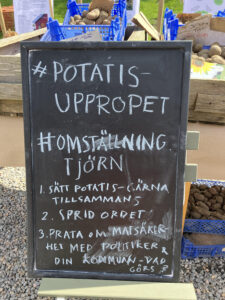 #POTATIS-
UPPROPET
#OMSTÄLLNING
TJÖRN
1. SÄTT POTATIS - GÄRNA
TILLSAMMANS
2. SPRID ORDET
3. PRATA OM MATSÄKER
HET MED POLITIKER &
DIN KOMMUN - VAD
GÖRS?